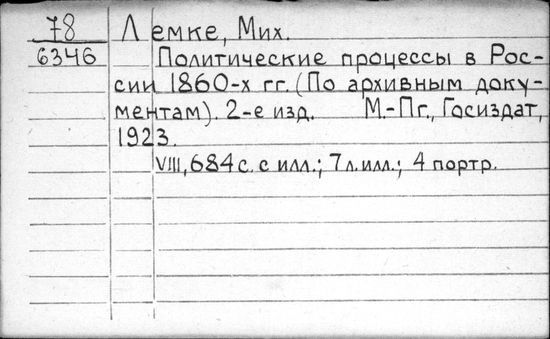 78 Лемке, Мих.
6346 Политические процессы в Рос-
сии 1860-х гг. (По архивным доку-
ментам). 2-е изд. М.-Пг., Госиздат,
1923.
VIII, 684 с. с илл.; 7 л. илл.; 4 портр.